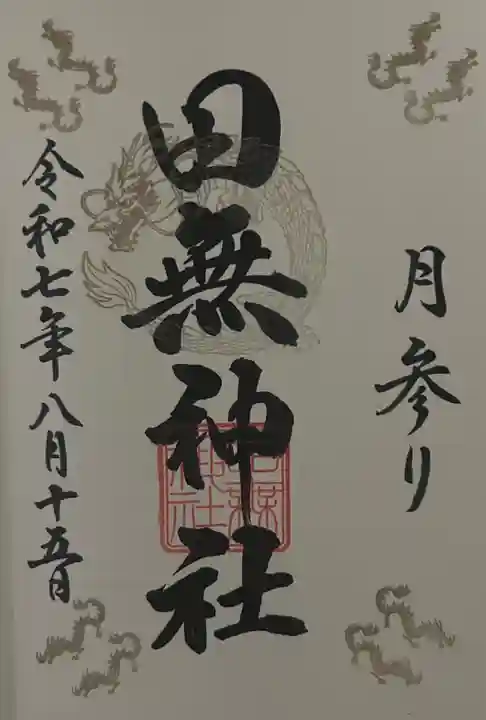 月参り
田無神社
令和七年八月十五日
田無神社